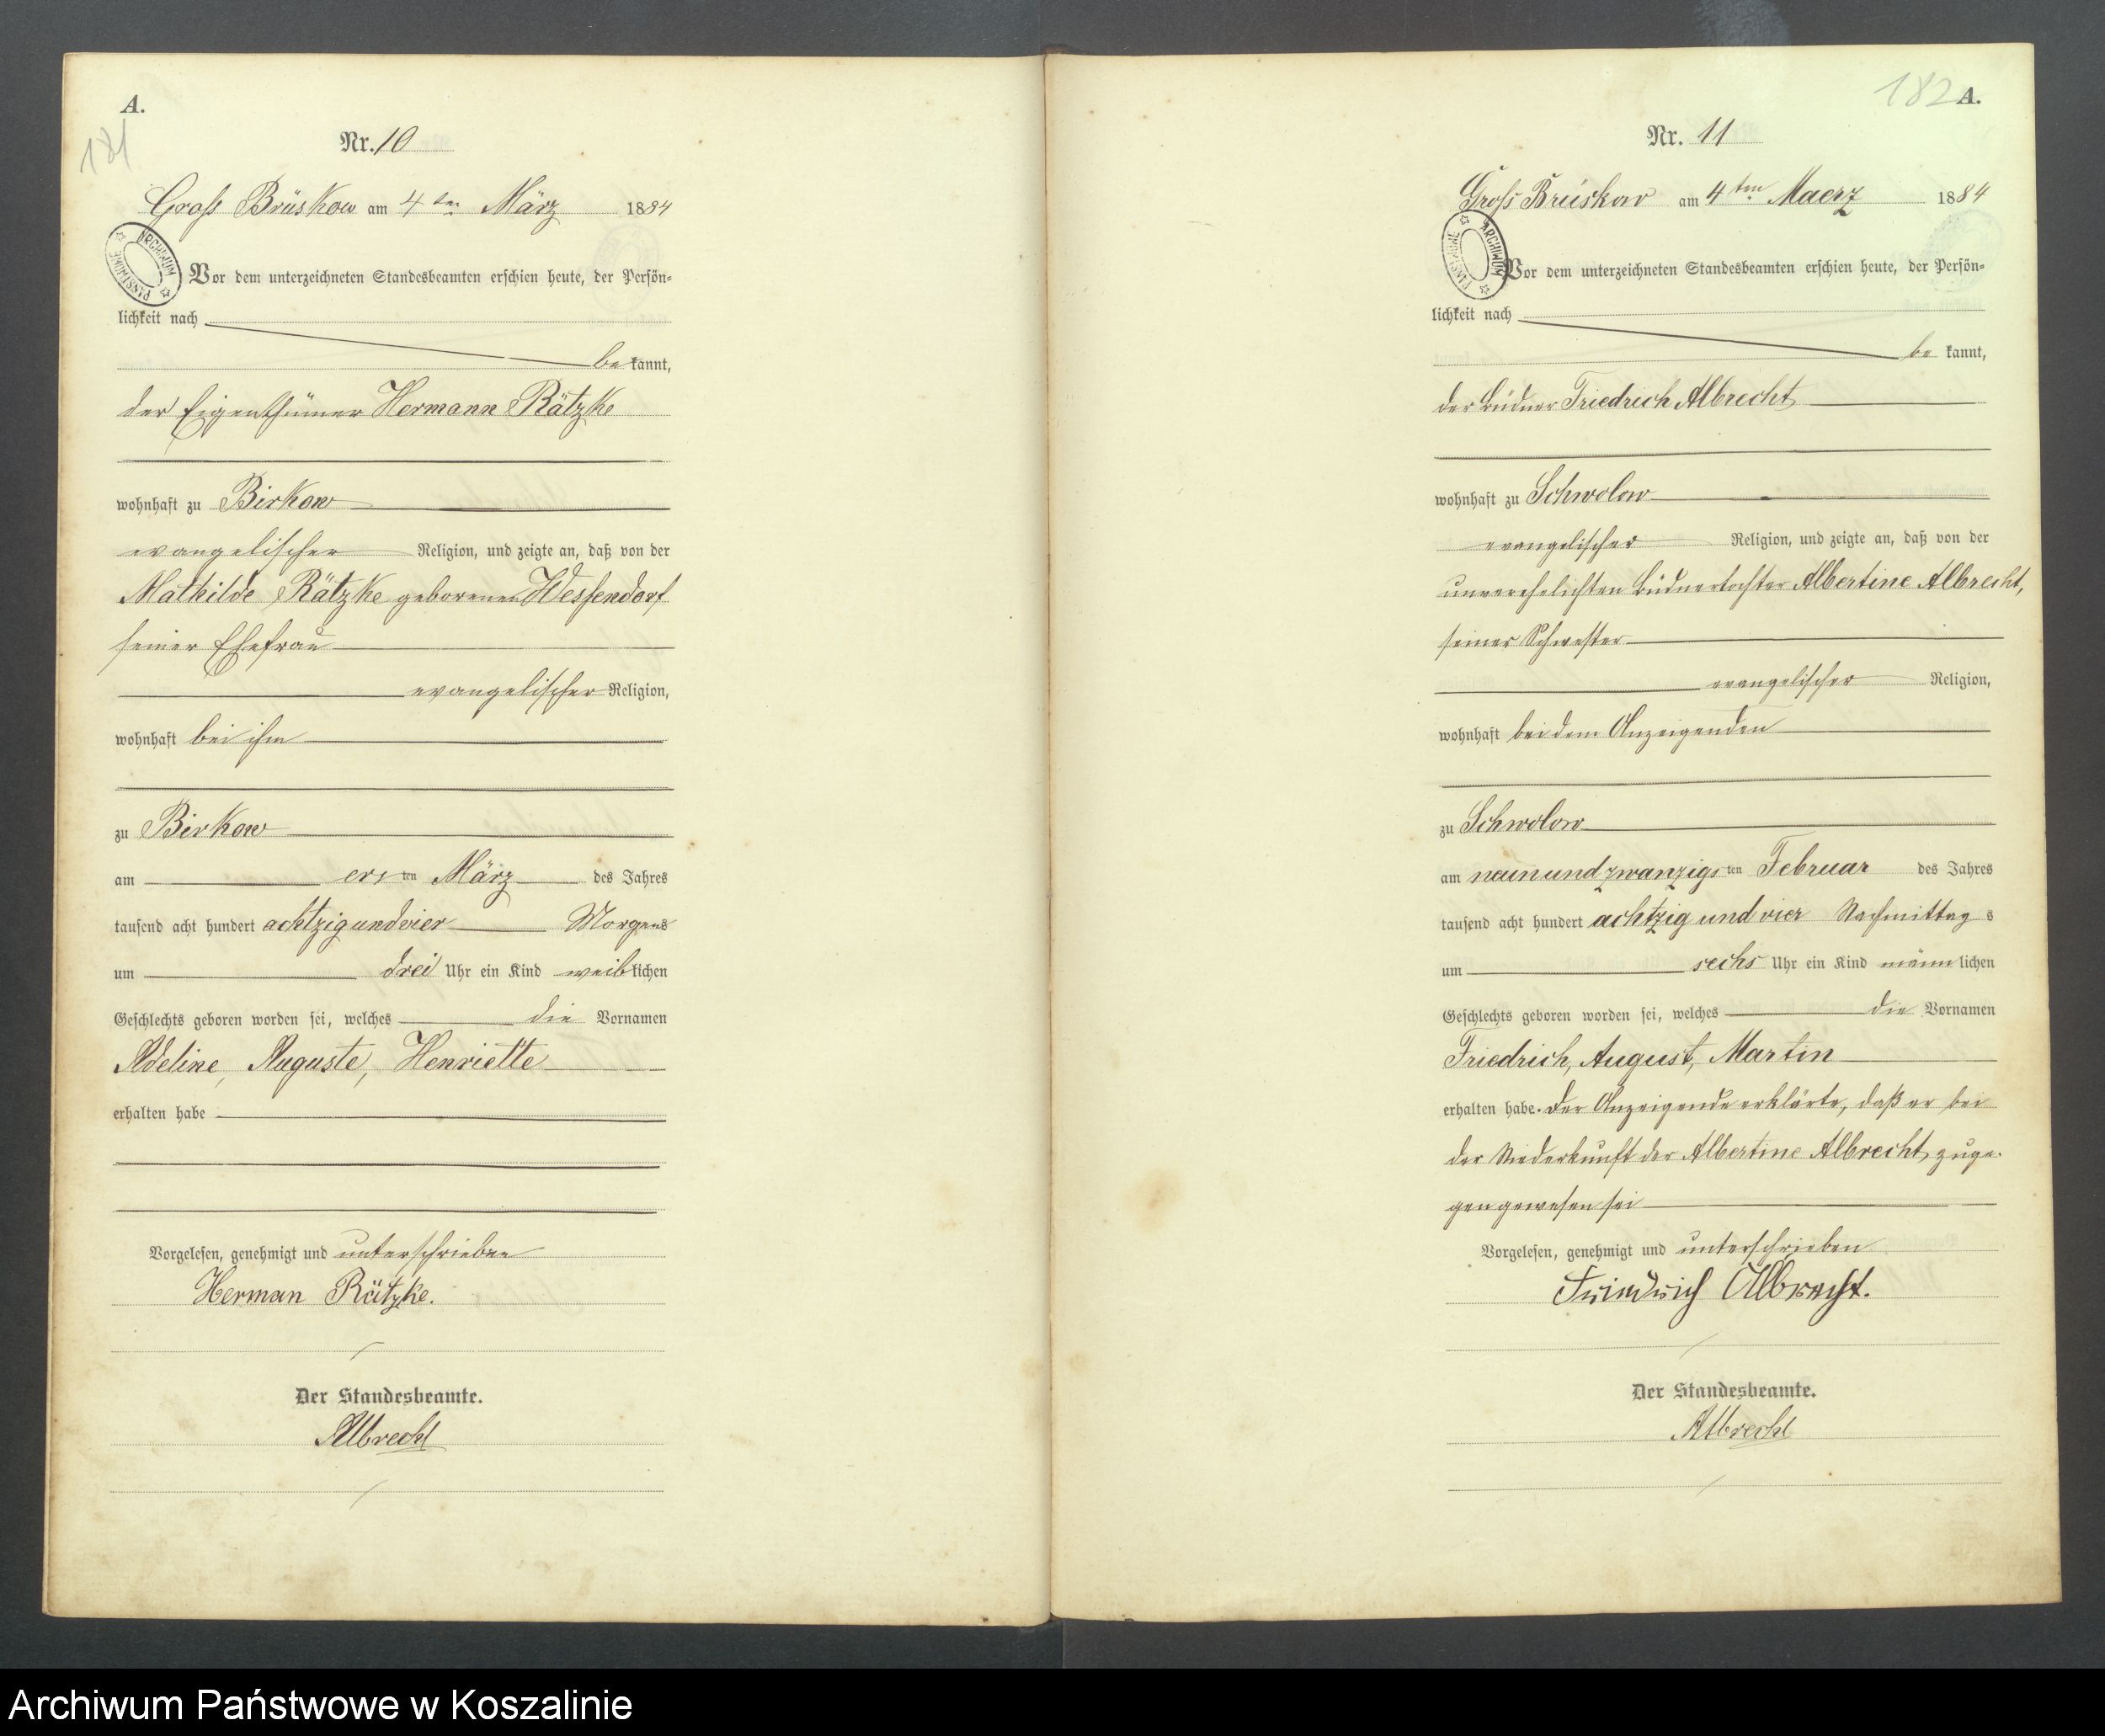 A.
181
Nr. 10
Gross Brüskow am 4ten März 1884
ARCHIWUM PAŃSTWOWE
Vor dem unterzeichneten Standesbeamten erschien heute, der Persön-
lichkeit nach
bekannt,
der Eigenthümer Hermann Rätzke
wohnhaft zu Birkow
evangelischer Religion, und zeigte an, daß von der
Mathilde Rätzke geborenen Wessendorf
seiner Ehefrau
evangelischer Religion,
wohnhaft bei ihm
zu Birkow
am ersten März des Jahres
tausend acht hundert achtzig und vier Morgens
um drei Uhr ein Kind weiblichen
Geschlechts geboren worden sei, welches die Vornamen
Adeline, Auguste, Henriette
erhalten habe
Vorgelesen, genehmigt und unterschrieben
Herman Rätzke.
Der Standesbeamte.
Albrecht
182 A.
Nr. 11
Gross Brüskow am 4ten Maerz 1884
ARCHIWUM PAŃSTWOWE
Vor dem unterzeichneten Standesbeamten erschien heute, der Persön-
lichkeit nach
bekannt,
der Büdner Friedrich Albrecht
wohnhaft zu Schwolow
evangelischer Religion, und zeigte an, daß von der
unverehelichten Büdnertochter Albertine Albrecht,
seiner Schwester
evangelischer Religion,
wohnhaft bei dem Anzeigenden
zu Schwolow
am neunundzwanzigsten Februar des Jahres
tausend acht hundert achtzig und vier Nachmittags
um sechs Uhr ein Kind männlichen
Geschlechts geboren worden sei, welches die Vornamen
Friedrich, August, Martin
erhalten habe. Der Anzeigende erklärte, daß er bei
der Niederkunft der Albertine Albrecht zuge-
gen gewesen sei
Vorgelesen, genehmigt und unterschrieben
Friedrich Albrecht.
Der Standesbeamte.
Albrecht
Archiwum Państwowe w Koszalinie